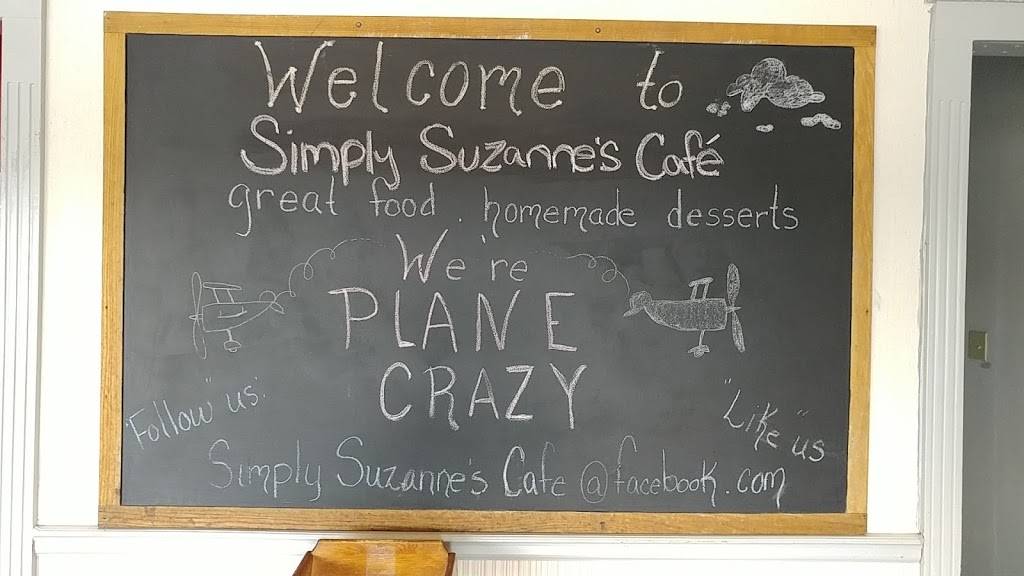 Welcome to
Simply Suzanne's Café
great food. homemade desserts
We're
PLANE
CRAZY
"Follow" us.
"Like" us
Simply Suzanne's Cafe @facebook.com